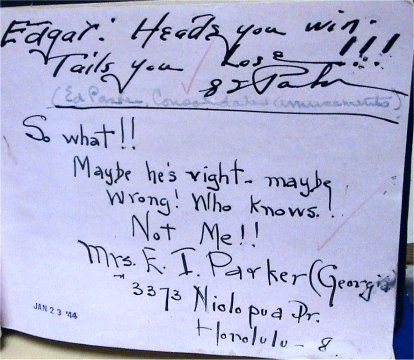 Edgar: Heads you win.
Tails you Lose !!!
Ed Parker
(Ed Parker, Consolidated Amusements)
So what!!
Maybe he's right - maybe
Wrong! Who knows.
Not Me!!
Mrs. E. I. Parker (Georgia)
3373 Niolopua Dr.
Honolulu - 8
JAN 23 '44